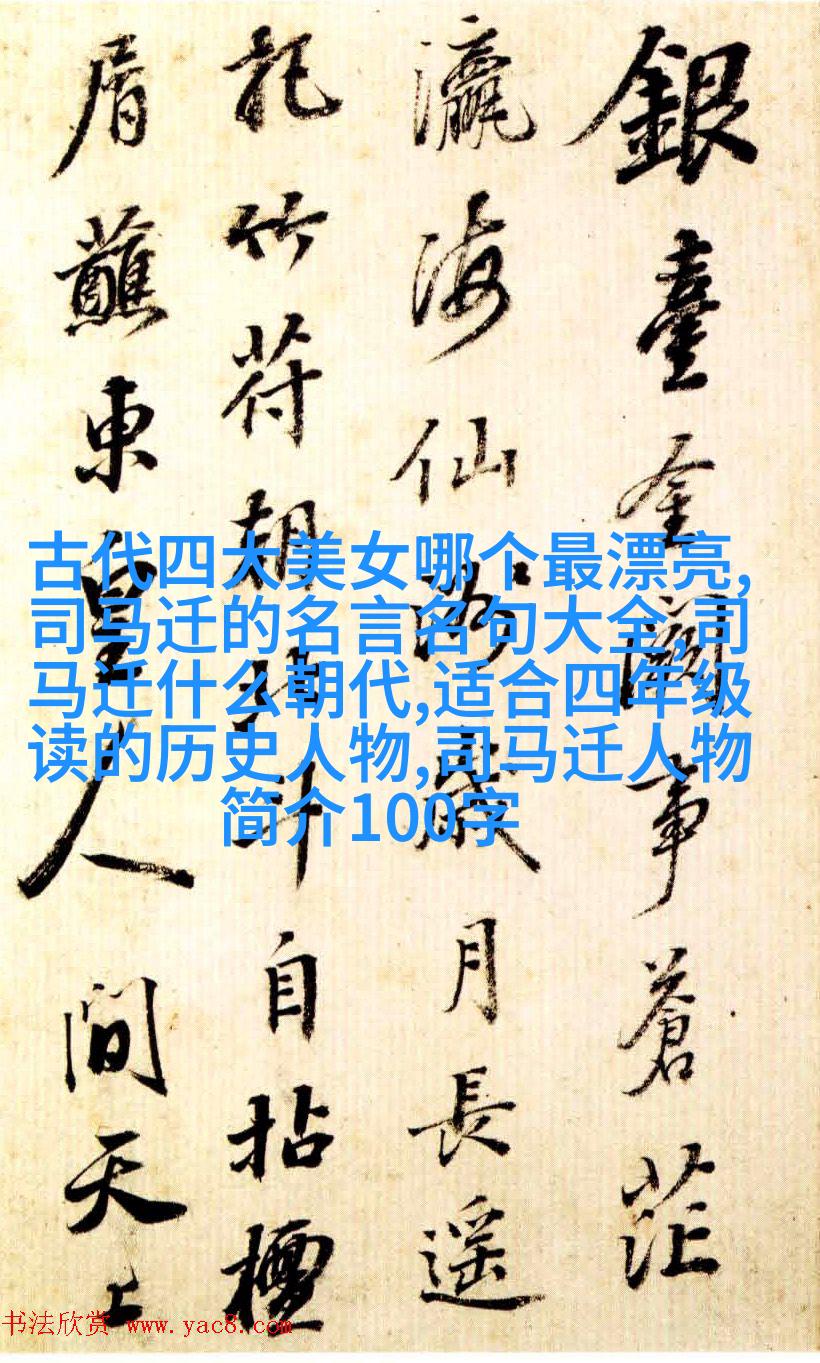 銀臺金闕事蒼茫
瀛海仙洲歲月長遥
記竹符朝斗自拈檀
屑蘸東皇人間天上
古代四大美女哪个最漂亮,
司马迁的名言名句大全,司
马迁什么朝代,适合四年级
读的历史人物,司马迁人物
简介100字
书法欣赏 www.yac8.com